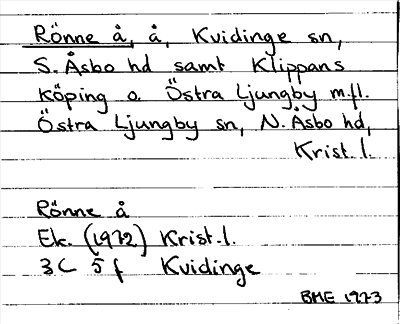 Rönne å, å, Kvidinge sn,
S. Åsbo hd samt Klippans
köping o. Östra Ljungby m.fl.
Östra Ljungby sn, N. Åsbo hd,
Krist. l.
Rönne å
Ek. (1972) Krist. l.
3C 5f Kvidinge
BME 1973